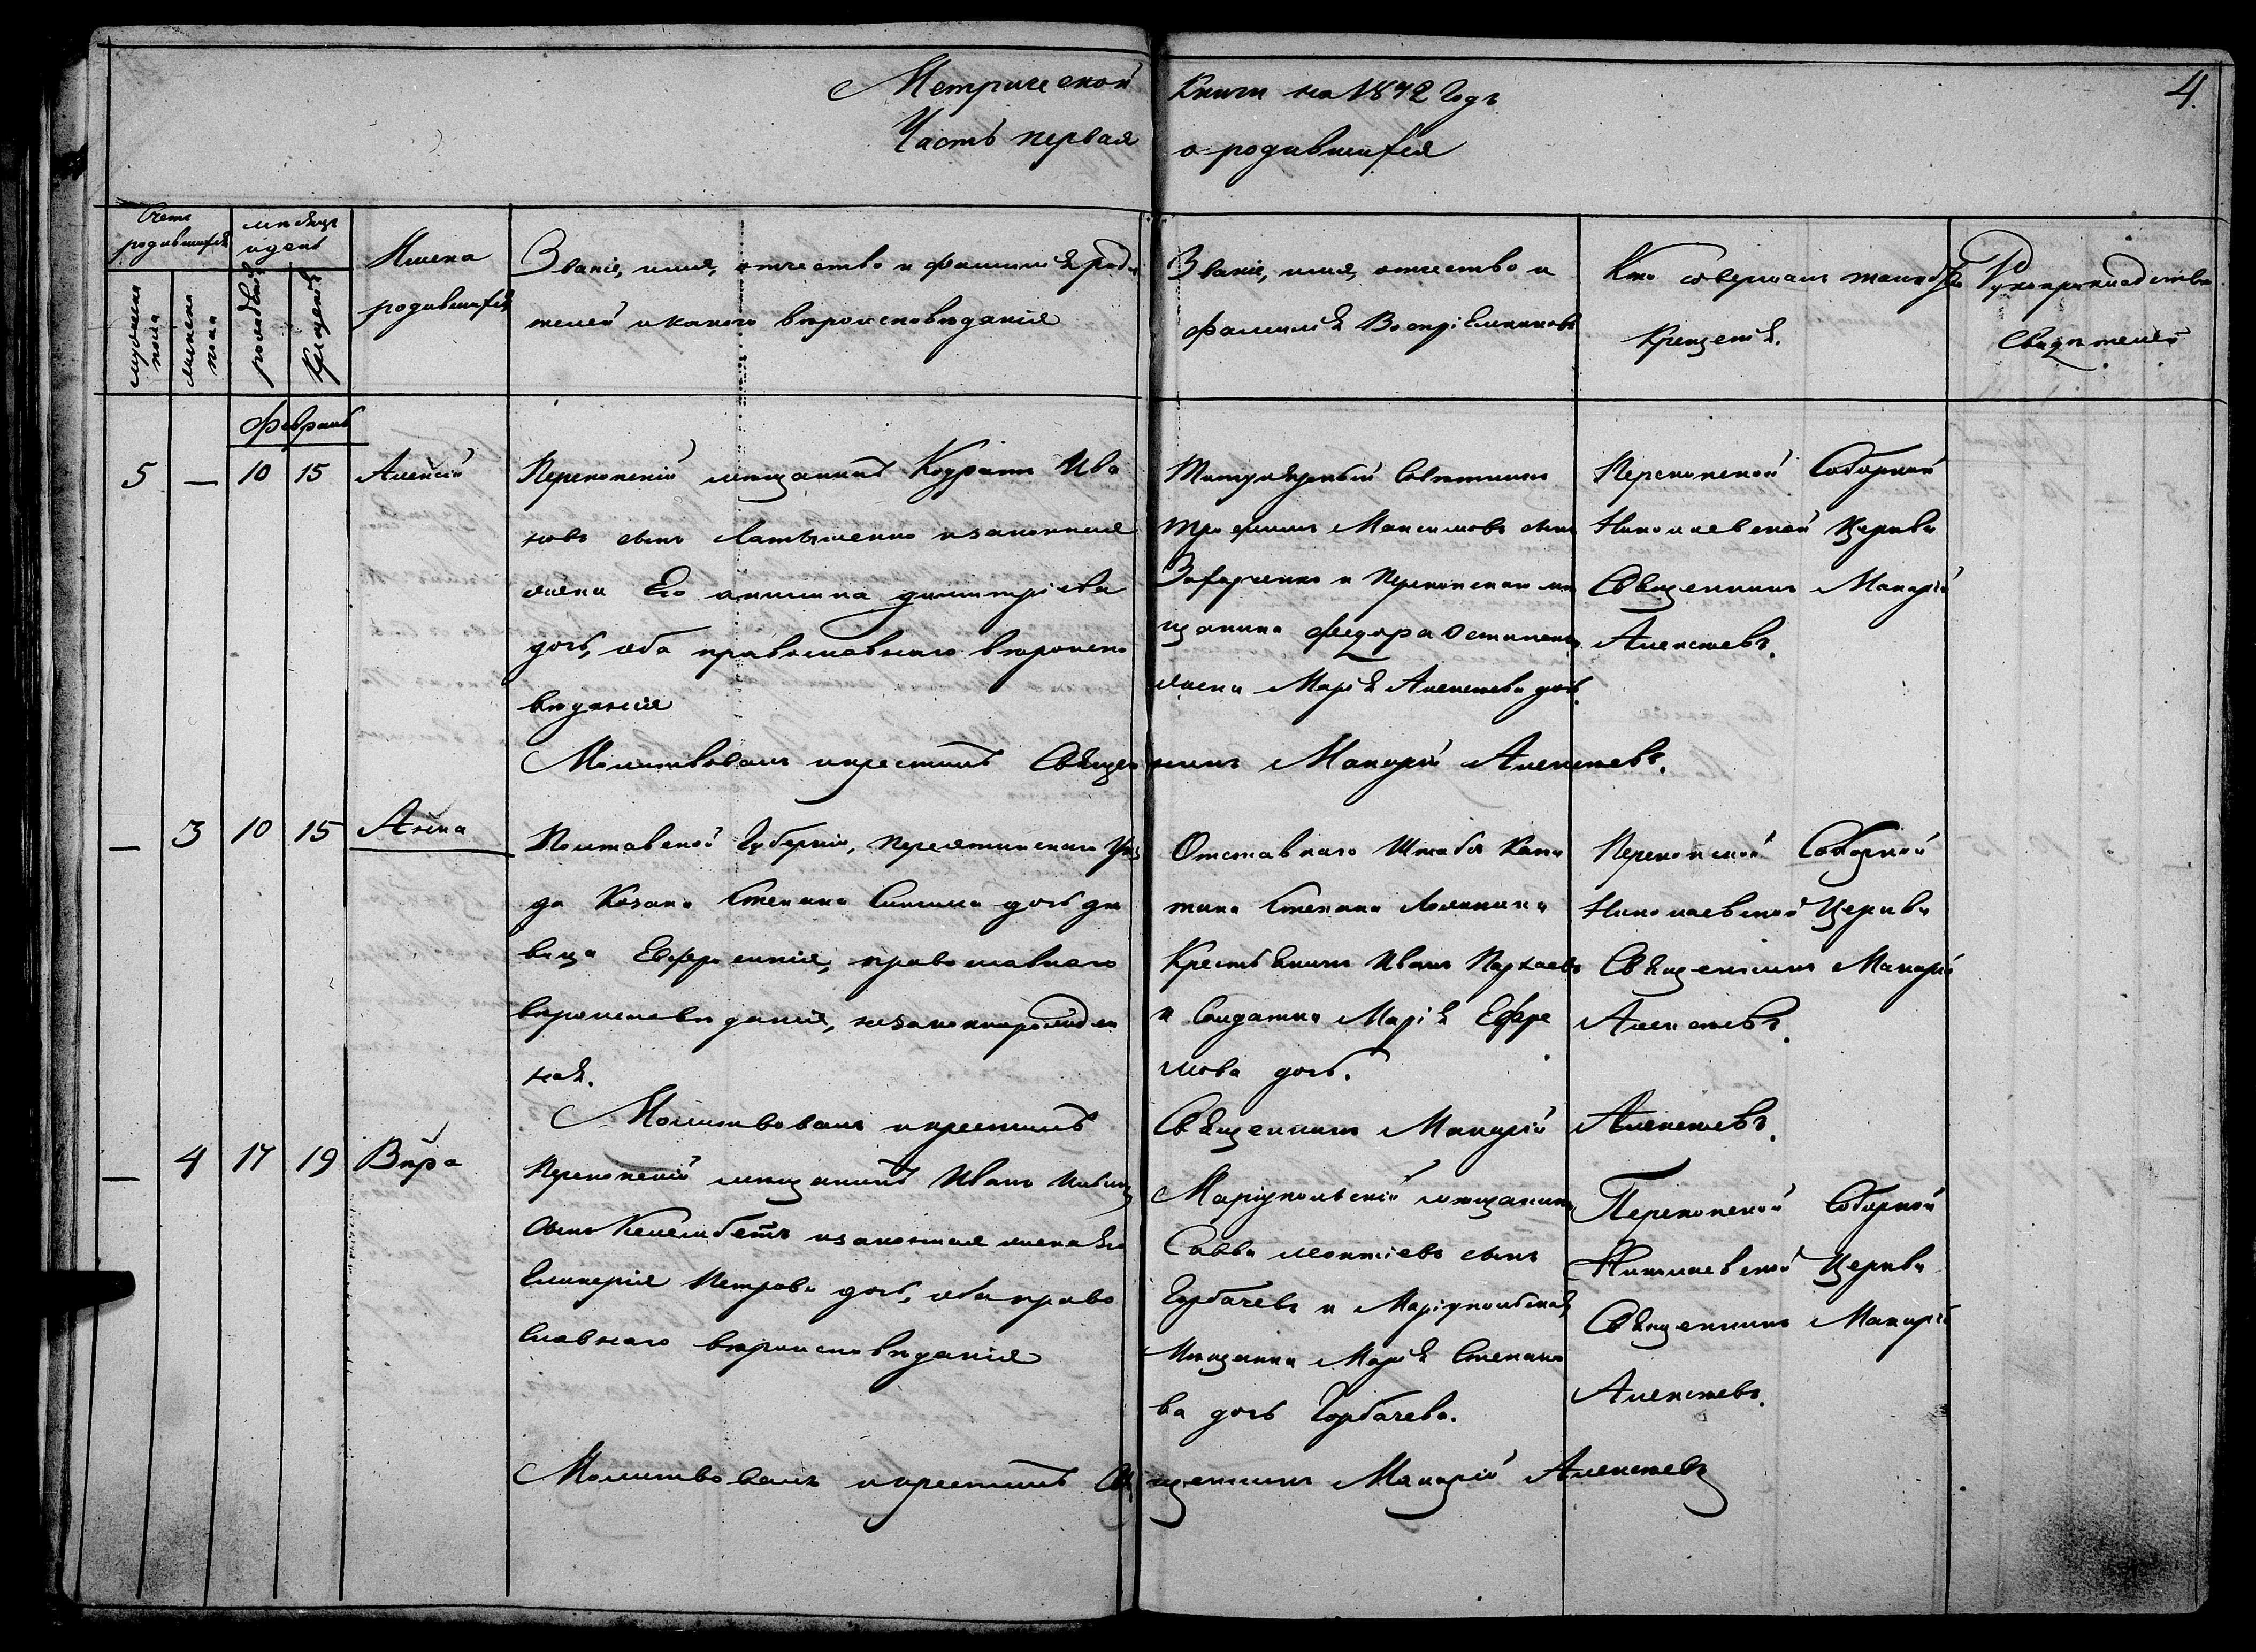 Метрической Книги на 1872 годъ 4
Часть первая о родившихся
Счетъ родившихся
мѣсяцъ и день
мужеска пола
женска пола
рожденія
крещенія
Имена
родившихся
Званіе, имя, отчество и фамилія роди
телей и какого вѣроисповѣданія
Званіе, имя, отчество и
фамилія Воспріемниковъ
Кто совершалъ таинство
Крещенія.
Рукоприкладство
Свидѣтелей
Февраль
5 — 10 15 Алексій
Перекопскій мѣщанинъ Кодратъ Ива
новъ сынъ Латышенко и законная
жена Его Акилина Димитріева
дочь, оба православнаго вѣроиспо
вѣданія
Титулярный Совѣтникъ
Трофимъ Максимовъ сынъ
Захарченко и Перекопскаго мѣ
щанина Федора Остапенко
жена Марія Алексѣева дочь.
Перекопской Соборной
Николаевской Церкви
Священникъ Макарій
Алексѣевъ.
Молитвовалъ и крестилъ Священникъ Макарій Алексѣевъ.
— 3 10 15 Анна
Полтавской Губерніи, Пирятинскаго Уѣз
да Козака Степана дочь дѣ
вица Евфросинія, православнаго
вѣроисповѣданія, незаконнорожден
ная.
Отставнаго Штабсъ Капи
тана Степана
Крестьянинъ Иванъ
и Солдатка Марія Ефре
мова дочь.
Перекопской Соборной
Николаевской Церкви
Священникъ Макарій
Алексѣевъ.
Молитвовалъ и крестилъ Священникъ Макарій Алексѣевъ.
— 4 17 19 Вѣра
Перекопскій мѣщанинъ Иванъ
сынъ Келембетъ и законная жена Его
Гликерія Петрова дочь, оба право
славнаго вѣроисповѣданія
Маріупольскій мѣщанинъ
Савва Леонтіевъ сынъ
Горбачевъ и Маріупольская
Мѣщанка Марія Степано
ва дочь Горбачева.
Перекопской Соборной
Николаевской Церкви
Священникъ Макарій
Алексѣевъ.
Молитвовалъ и крестилъ Священникъ Макарій Алексѣевъ